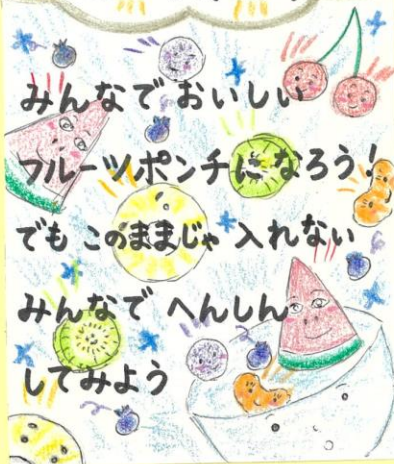 みんなで おいしい
フルーツポンチになろう!
でも このままじゃ 入れない
みんなで へんしん
してみよう